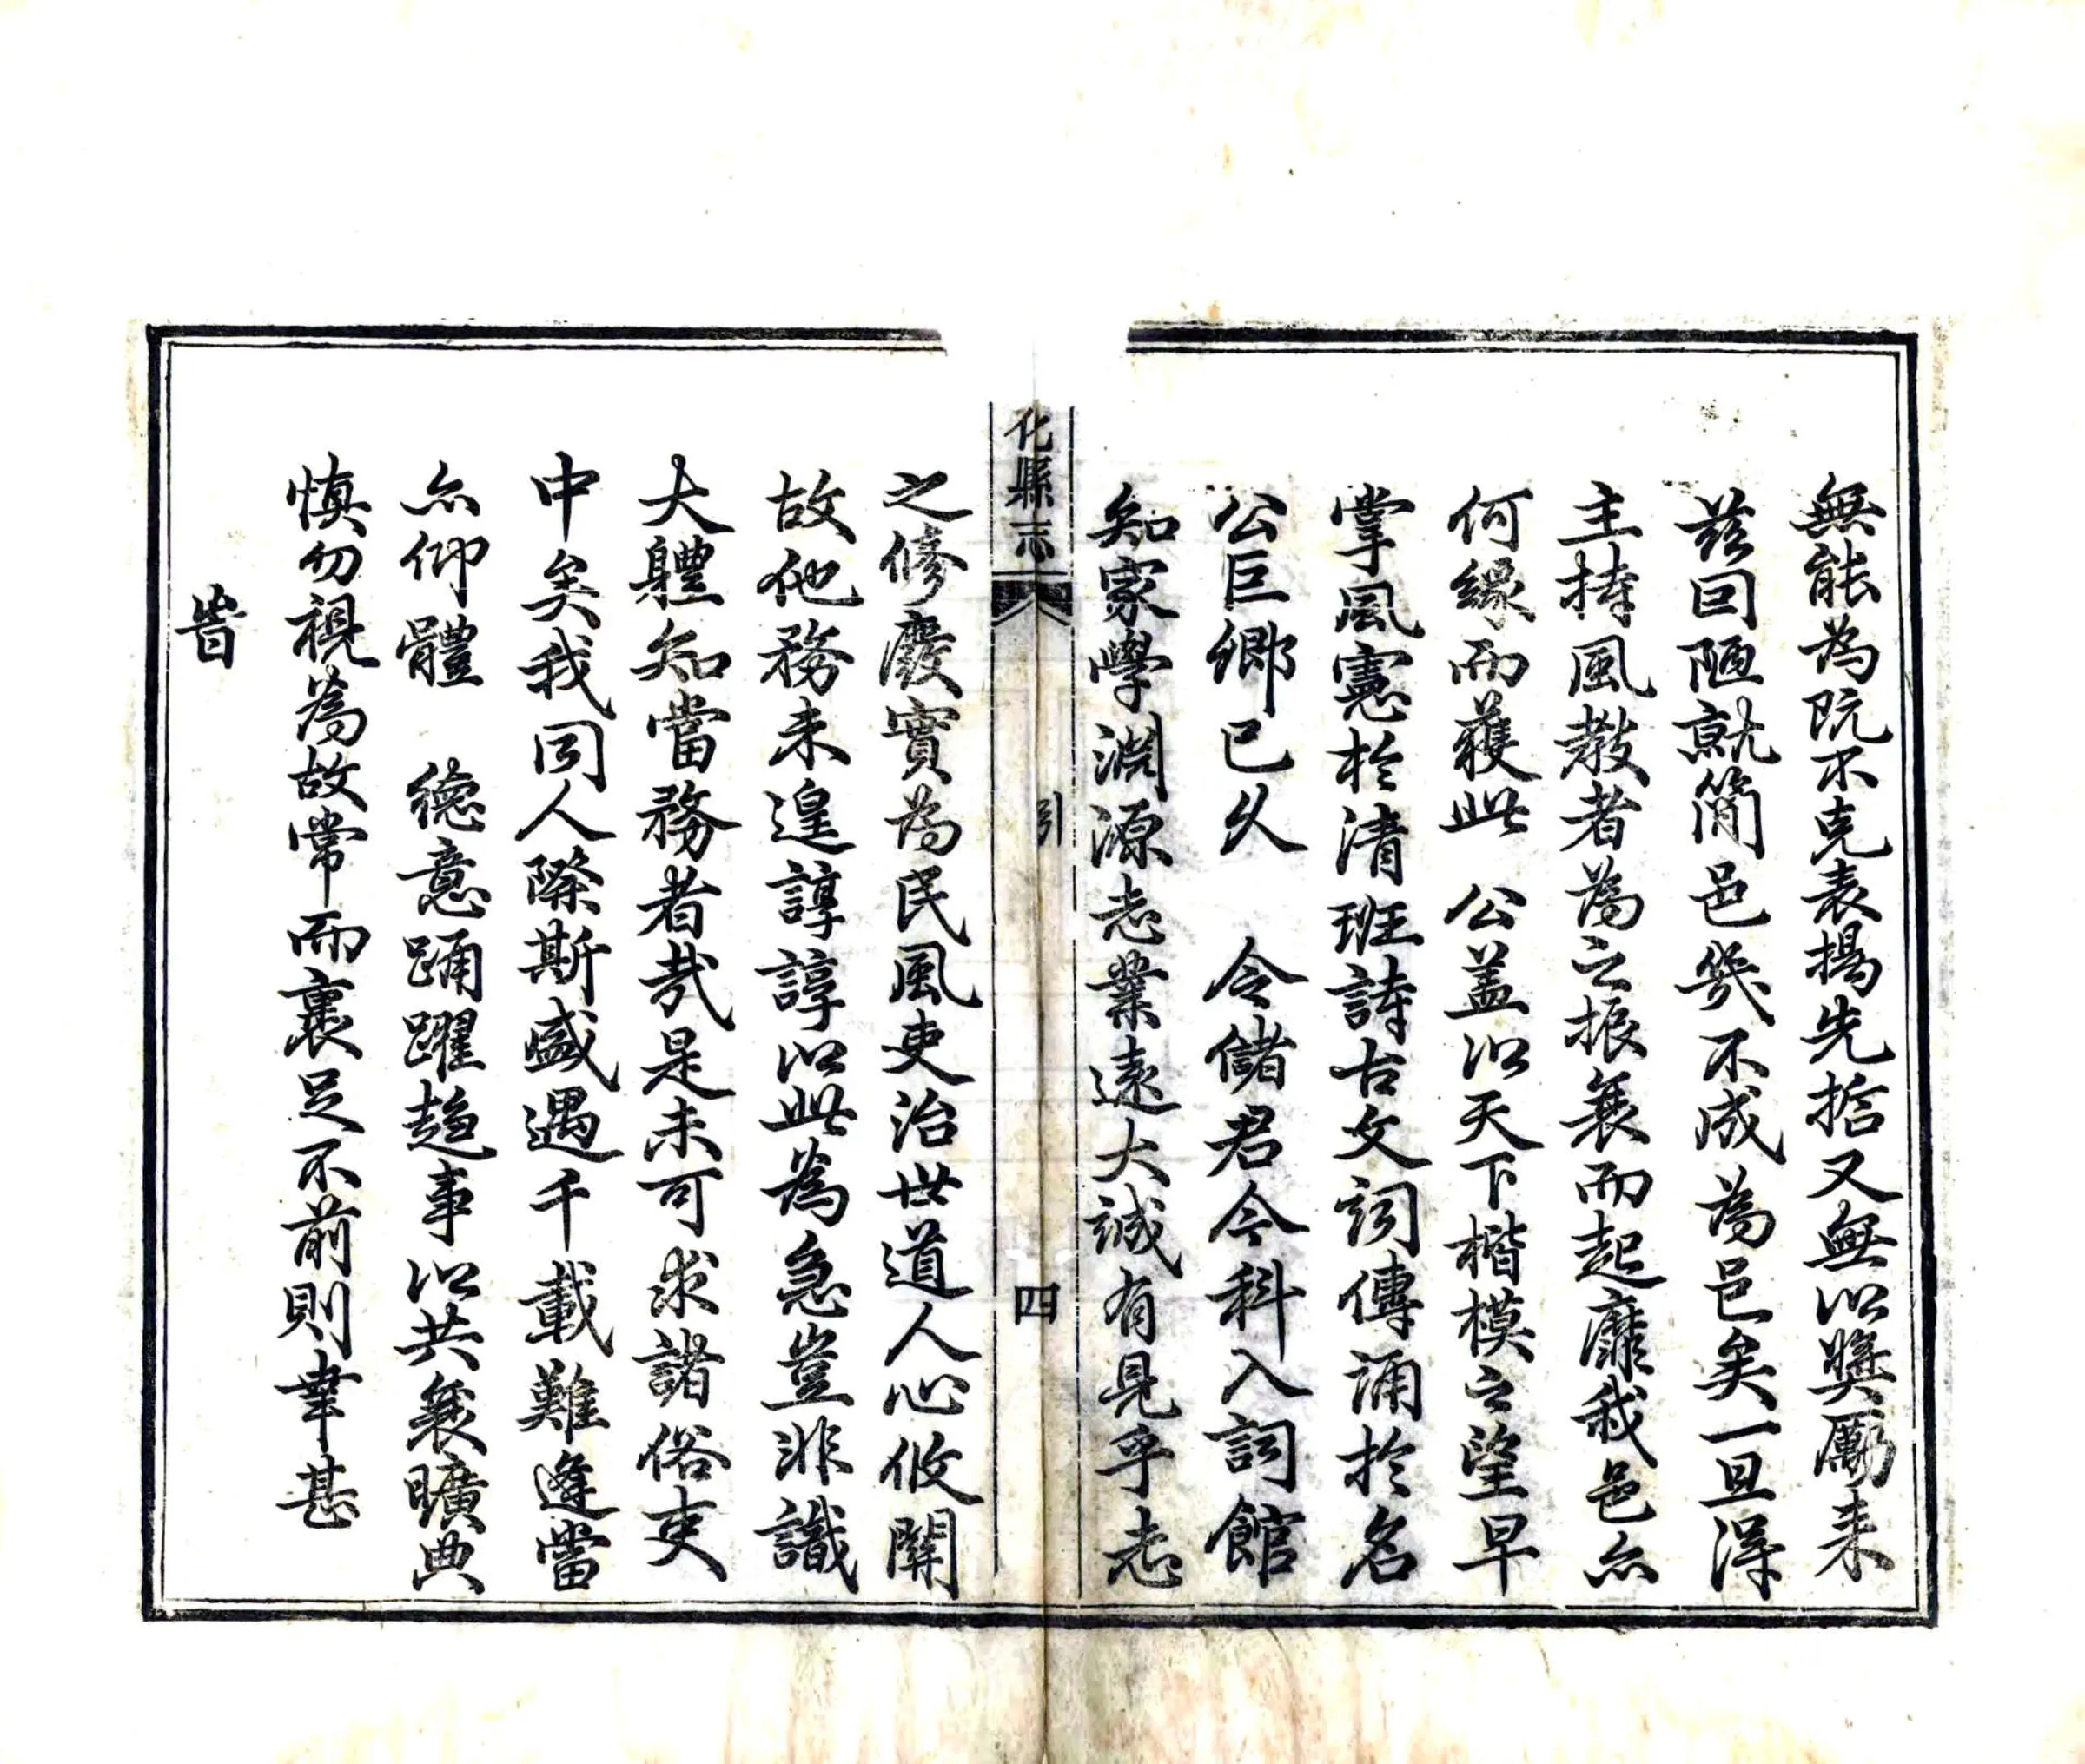 無能為既不克表揚先哲又無以奬勵来
兹因陋就簡邑幾不成為邑矣一旦淂
主持風教者為之振襄而起靡我邑亦
何緣而獲此 公盖以天下楷模之望早
掌風憲於清班詩古文詞傳誦於名
公巨鄉已久 令儲君今科入詞館
知家學淵源志業遠大誠有見乎志
化縣志
引
四
之修廢實為民風吏治世道人心攸関
故他務未遑諄諄以此為急豈非識
大軆知當務者哉是未可求諸俗吏
中矣我同人際斯盛遇千載難逢當
亦仰體 德意踊躍趋事以共襄曠典
慎勿視為故常而裹足不前則幸甚
旹